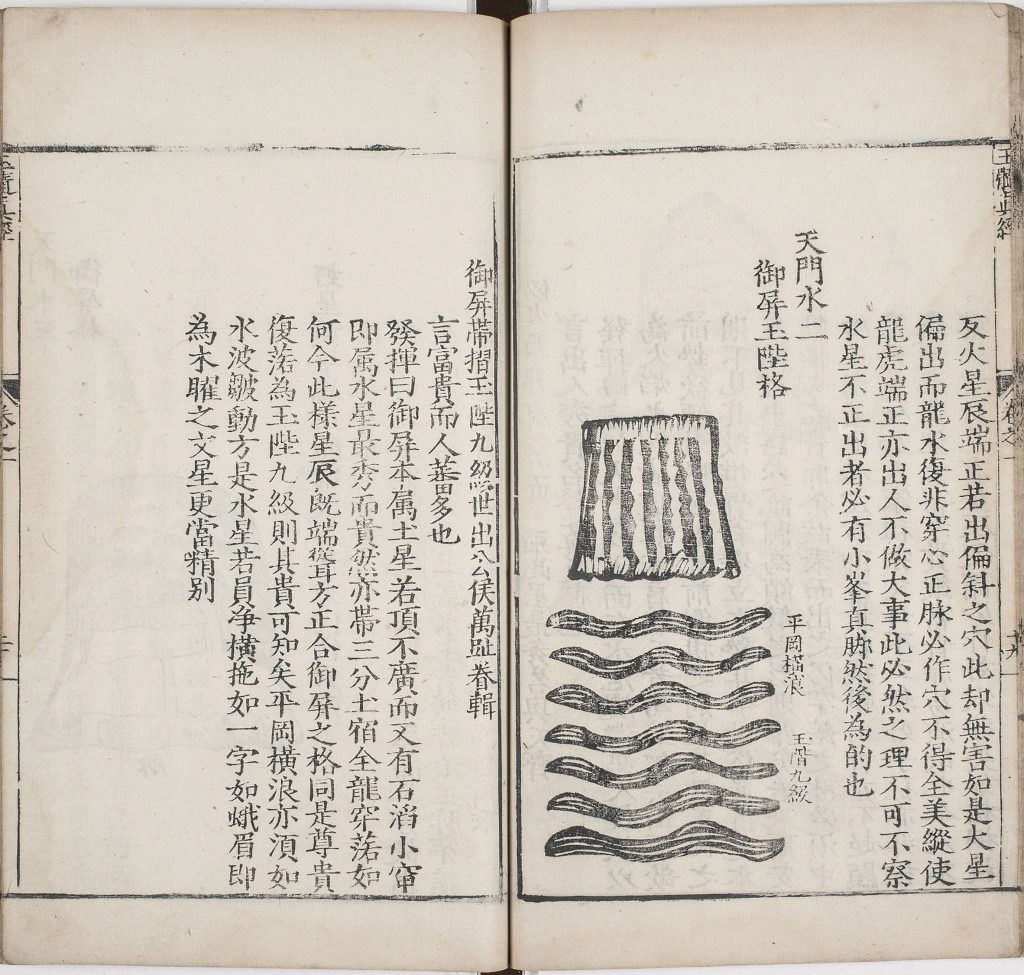 玉髓真經
卷之一
十九
及火星辰端正若出偏斜之穴此却無害如是大星
偏出而龍水復非穿心正脉必作穴不得全美縱使
龍虎端正亦出人不做大事此必然之理不可不察
水星不正出者必有小峯真脉然後為的也
天門水二
御屏玉陛格
平岡橫浪
玉階九級
御屏帶摺玉陛九級世出公侯萬趾眷輯
言富貴而人蕃多也
發揮曰御屏本属土星若頂不廣而又有石滔小窜
即属水星最秀而貴然亦帶三分土宿全龍穿落如
何今此様星辰既端聳方正合御屏之格同是尊貴
復落為玉陛九級則其貴可知矣平岡橫浪亦湏如
水波皺動方是水星若員净橫拖如一字如蛾眉即
為木曜之文星更當精别
玉髓真經
卷之一
二十